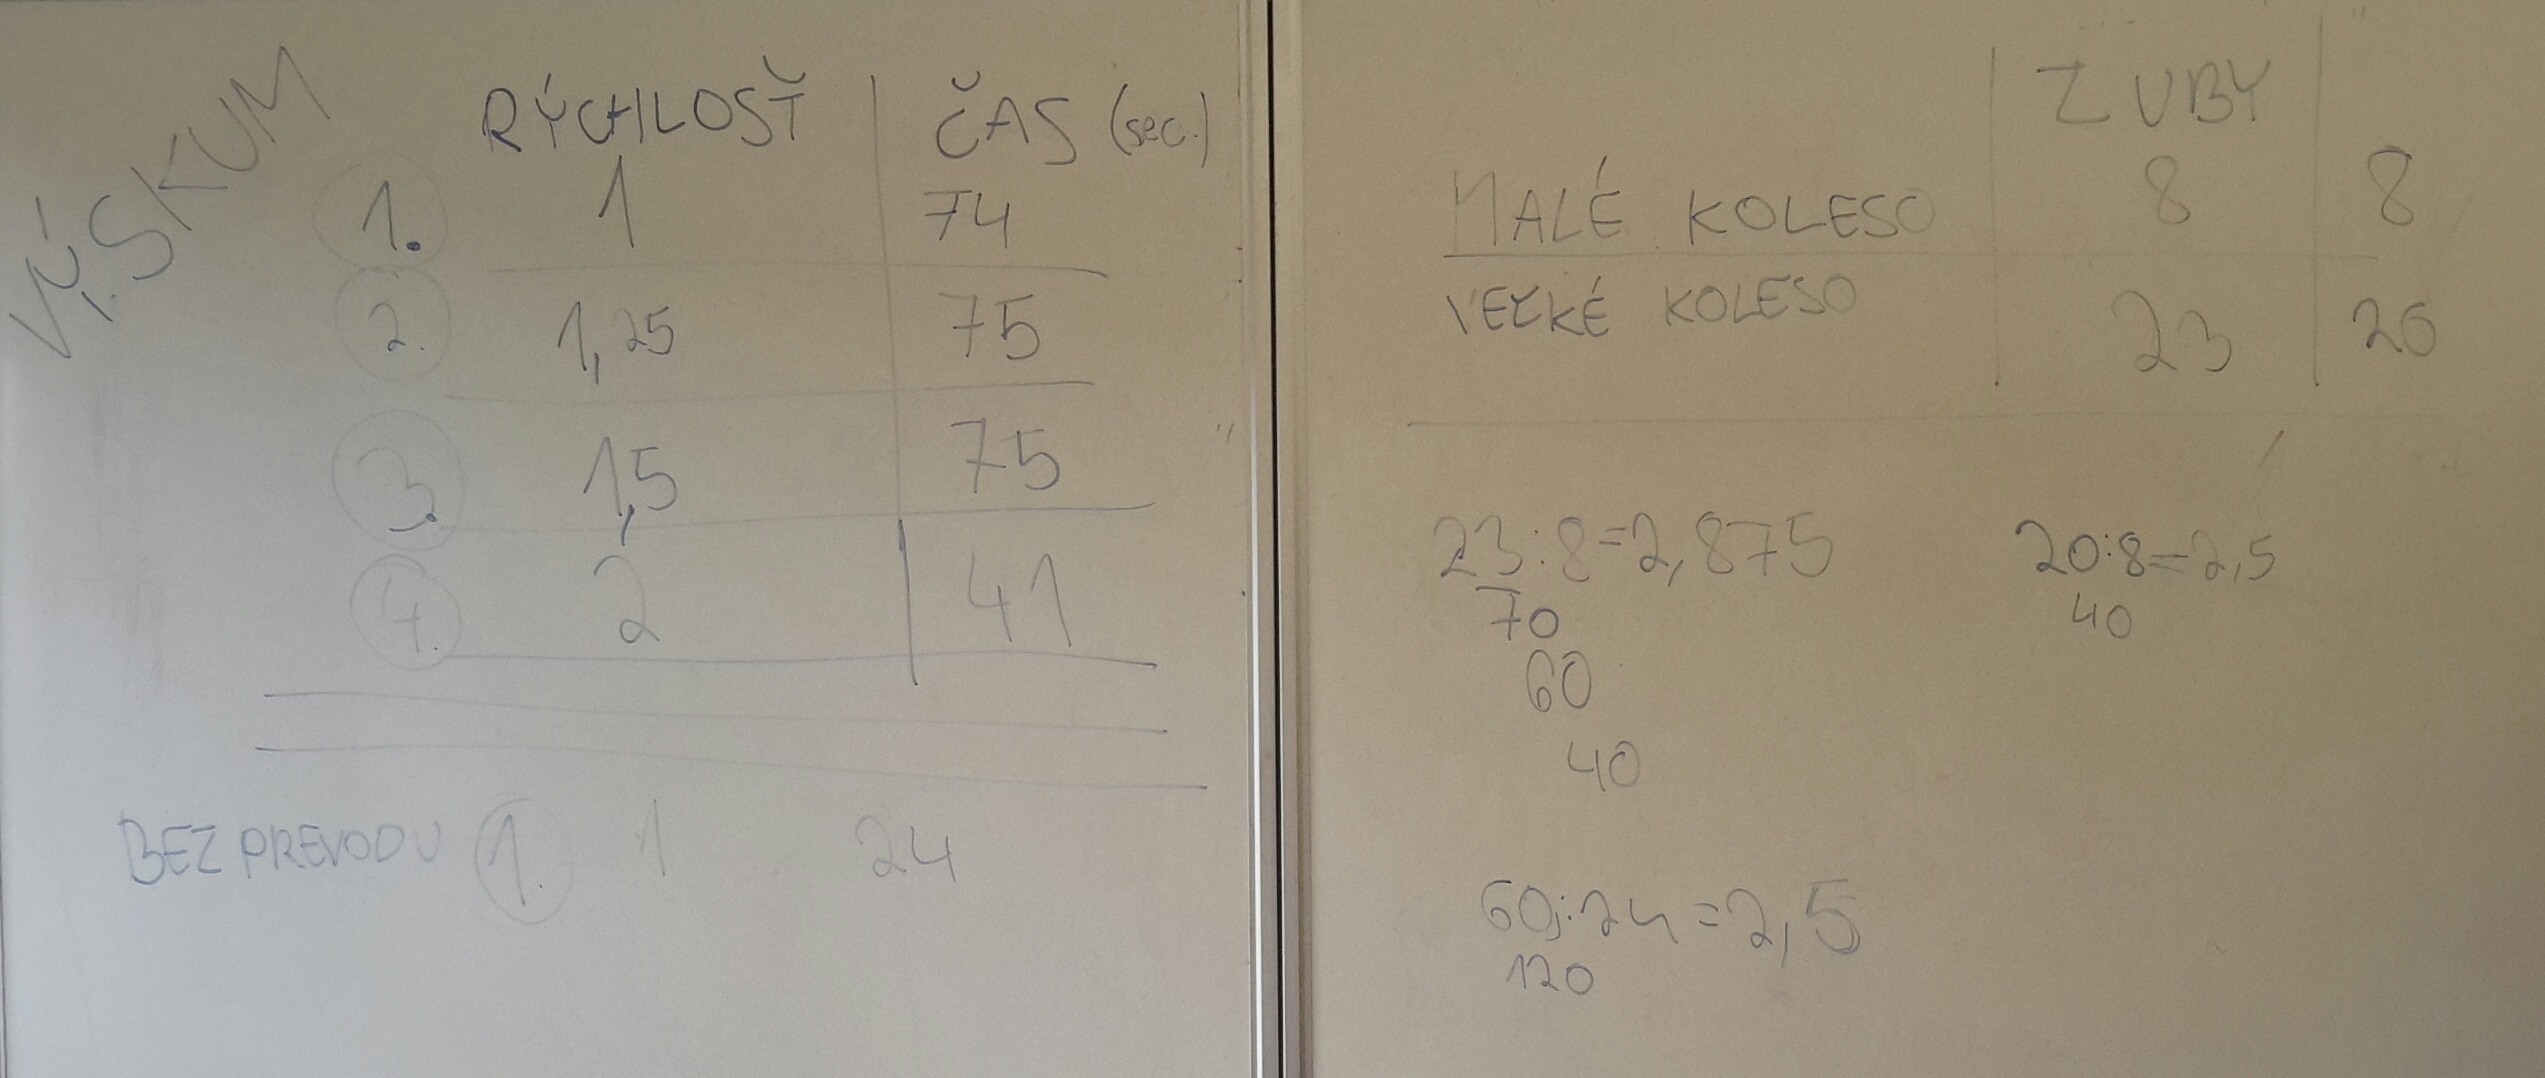 VÝSKUM
RÝCHLOSŤ ČAS (sec.)
1. 1 74
2. 1,25 75
3. 1,5 75
4. 2 41
BEZ PREVODU 1. 1 24
ZUBY
MALÉ KOLESO 8 8
VEĽKÉ KOLESO 23 20
23:8=2,875
70
60
40
20:8=2,5
40
60:24=2,5
120